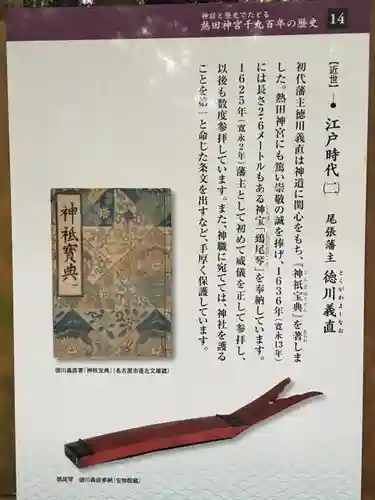 神話と歴史でたどる
熱田神宮千九百年の歴史
14
【近世】 江戸時代(二) 尾張藩主 徳川義直
とくがわよしなお
初代藩主徳川義直は神道に関心をもち、『神祇宝典』を著しま
した。熱田神宮にも篤い崇敬の誠を捧げ、1636年(寛永13年)
には長さ2.6メートルもある神宝「鵄尾琴」を奉納しています。
1625年(寛永2年)藩主として初めて威儀を正して参拝し、
以後も数度参拝しています。また、神職に宛てては、神社を護る
ことを第一と命じた条文を出すなど、手厚く保護しています。
神祇寳典 一
徳川義直著「神祇宝典」(名古屋市蓬左文庫蔵)
鵄尾琴 徳川義直奉納(宝物館蔵)